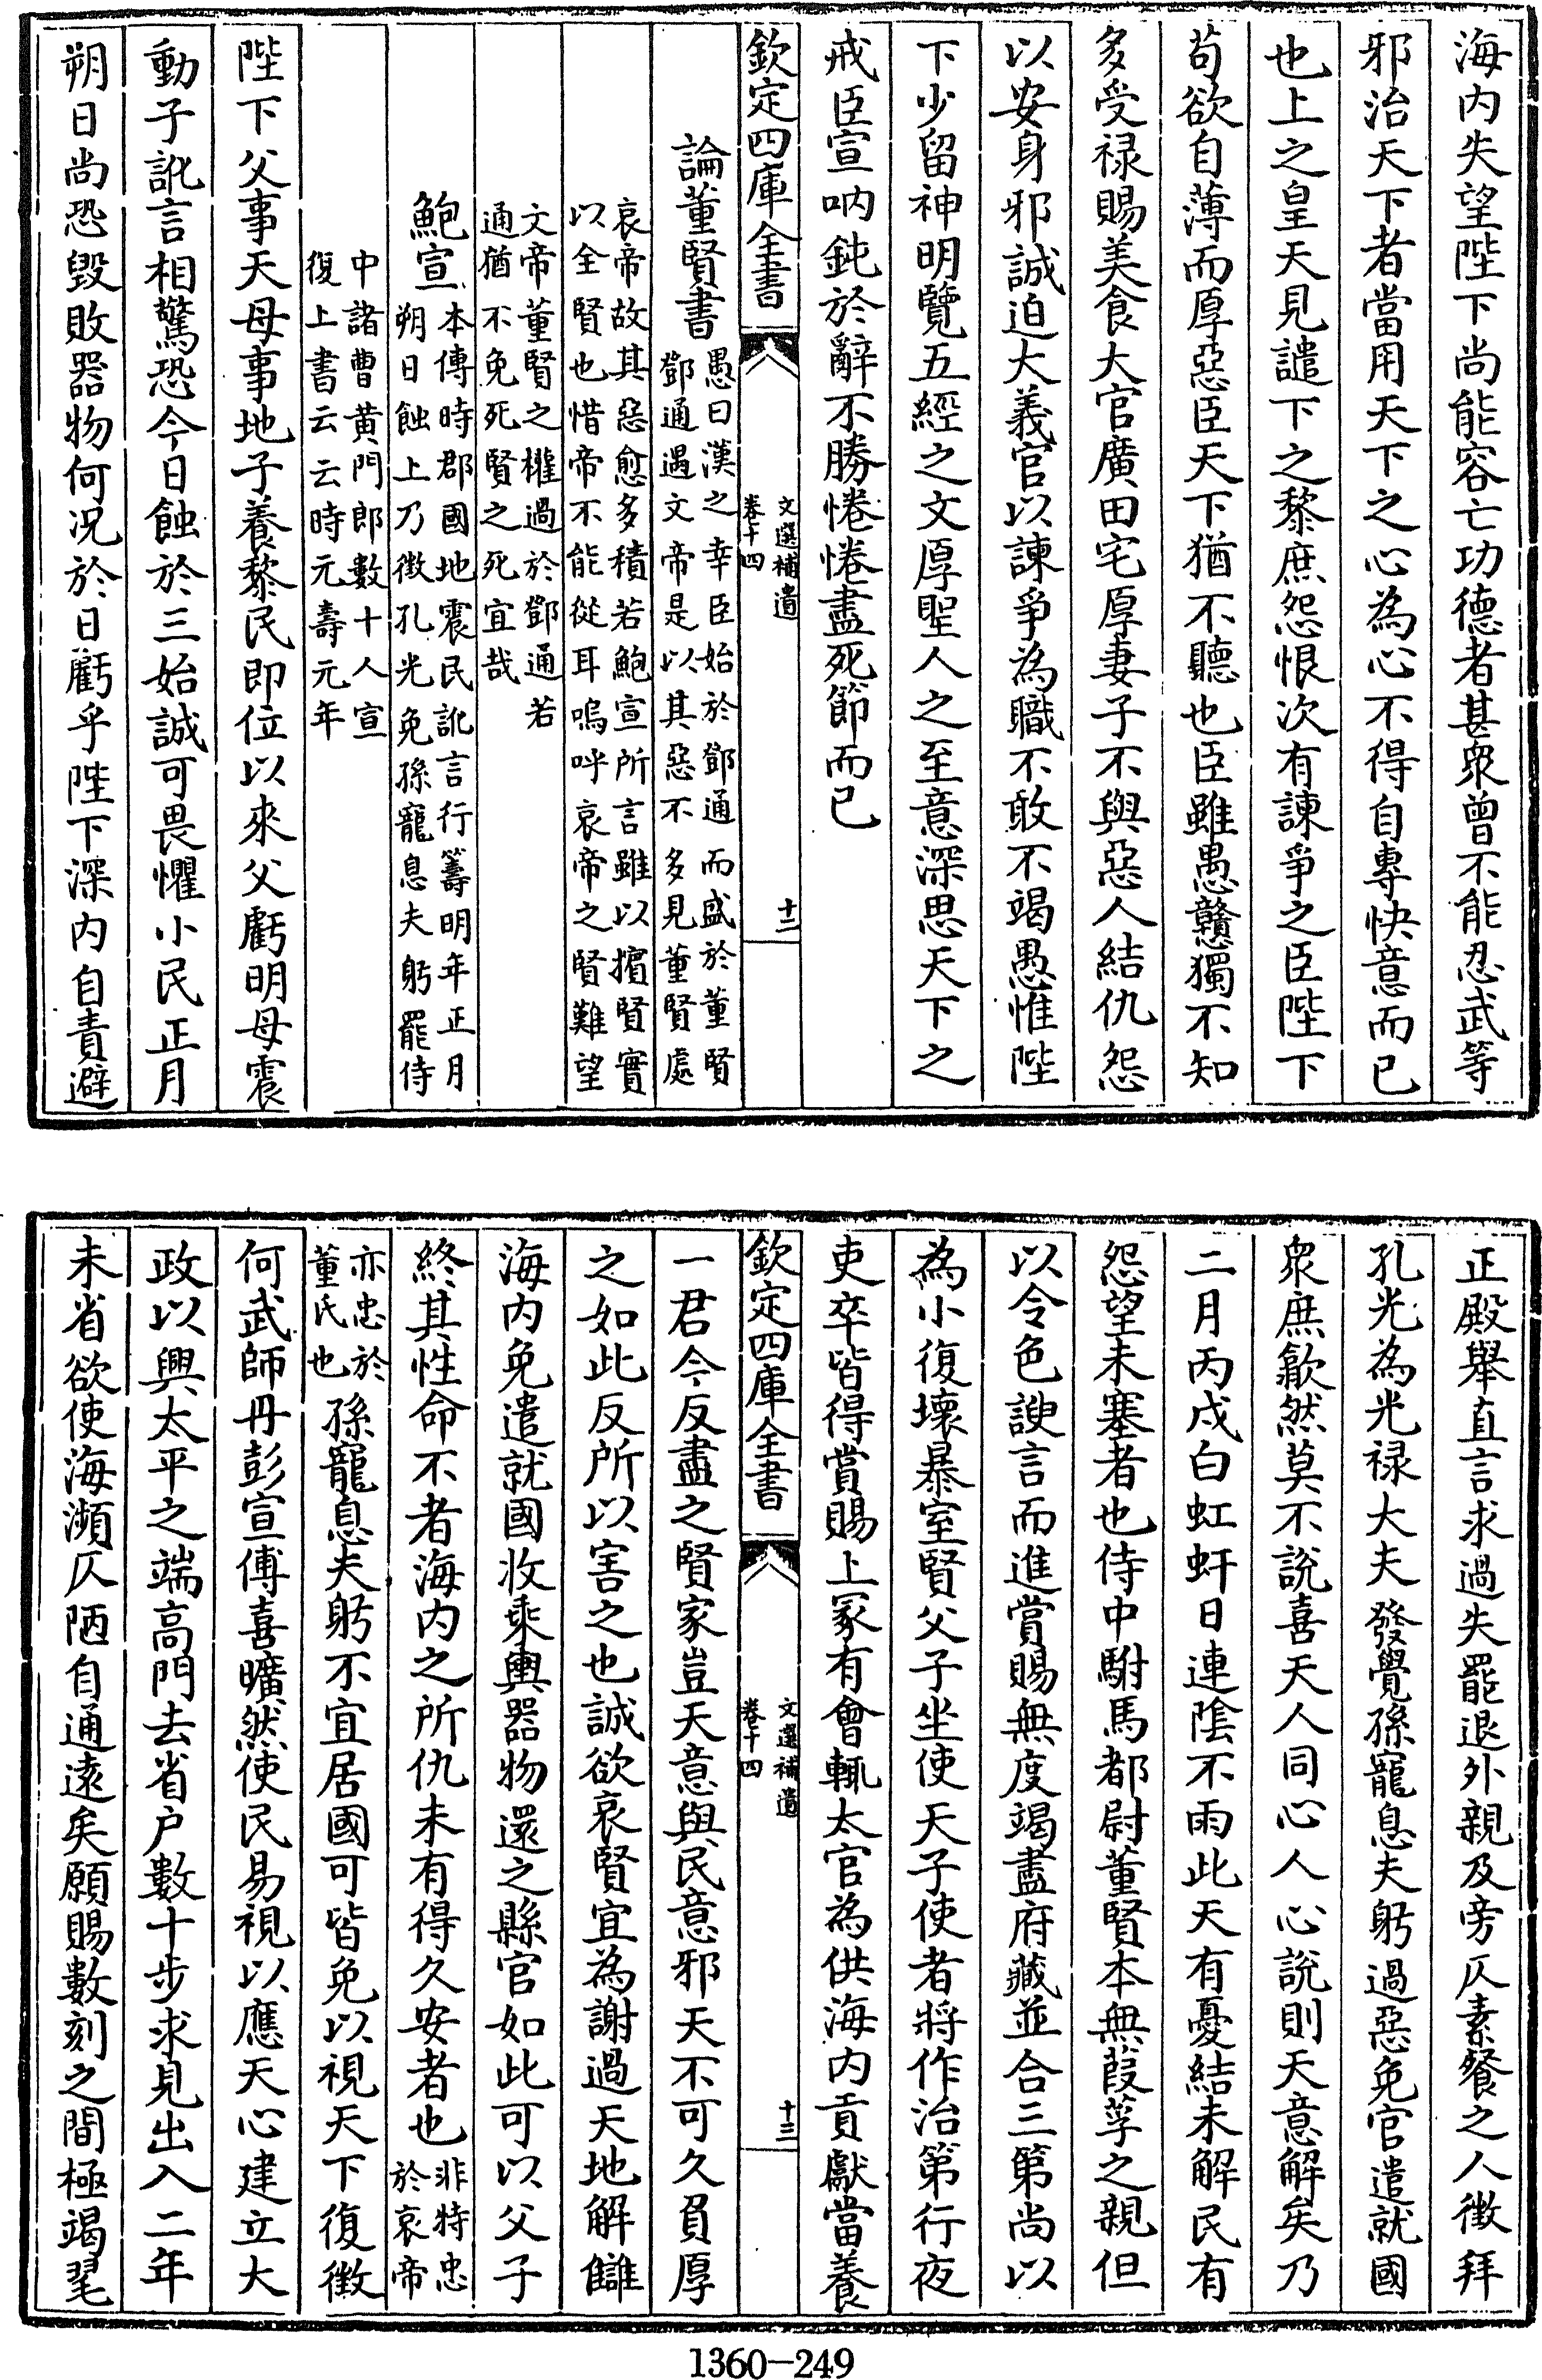 海内失望陛下尚能容亡功德者甚衆曾不能忍武等
邪治天下者當用天下之心為心不得自專快意而已
也上之皇天見譴下之黎庶怨恨次有諫爭之臣陛下
茍欲自薄而厚惡臣天下猶不聽也臣雖愚戇獨不知
多受禄賜美食大官廣田宅厚妻子不與惡人結仇怨
以安身邪誠迫大義官以諫爭為職不敢不竭愚惟陛
下少留神明覽五經之文厚聖人之至意深思天下之
戒臣宣吶鈍於辭不勝惓惓盡死節而已
欽定四庫全書
文選補遺
卷十四
十二
論董賢書
愚曰漢之幸臣始於鄧通而盛於董賢
鄧通遇文帝是以其惡不多見董賢處
哀帝故其惡愈多積若鮑宣所言雖以擯賢實
以全賢也惜帝不能從耳嗚呼哀帝之賢難望
文帝董賢之權過於鄧通若
通猶不免死賢之死宜哉
鮑宣
本傳時郡國地震民訛言行籌明年正月
朔日蝕上乃徵孔光免孫寵息夫躬罷侍
中諸曹黄門郎數十人宣
復上書云云時元壽元年
陛下父事天母事地子養黎民即位以來父虧明母震
動子訛言相驚恐今日蝕於三始誠可畏懼小民正月
朔日尚恐毀敗器物何况於日虧乎陛下深内自責避
正殿舉直言求過失罷退外親及旁仄素餐之人徵拜
孔光為光禄大夫發覺孫寵息夫躬過惡免官遣就國
衆庶歙然莫不說喜天人同心人心說則天意解矣乃
二月丙戌白虹虷日連陰不雨此天有憂結未解民有
怨望未塞者也侍中駙馬都尉董賢本無葭莩之親但
以令色諛言而進賞賜無度竭盡府藏並合三第尚以
為小復壞暴室賢父子坐使天子使者將作治第行夜
吏卒皆得賞賜上冢有會輒太官為供海内貢獻當養
欽定四庫全書
文選補遺
卷十四
十三
一君今反盡之賢家豈天意與民意邪天不可久負厚
之如此反所以害之也誠欲哀賢宜為謝過天地解讎
海内免遣就國收乘輿器物還之縣官如此可以父子
終其性命不者海内之所仇未有得久安者也
非特忠
於哀帝
亦忠於
董氏也
孫寵息夫躬不宜居國可皆免以視天下復徵
何武師丹彭宣傅喜曠然使民易視以應天心建立大
政以興太平之端高門去省户數十步求見出入二年
未省欲使海瀕仄陋自通遠矣願賜數刻之間極竭毣
1360-249